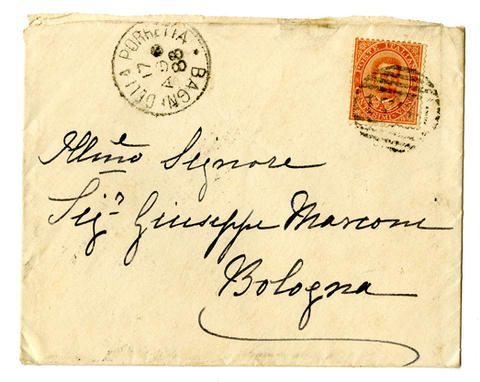 BAGNI DELLA PORRETTA
17
88
POSTE ITALIANE
Illmo Signore
Sigr Giuseppe Marconi
Bologna